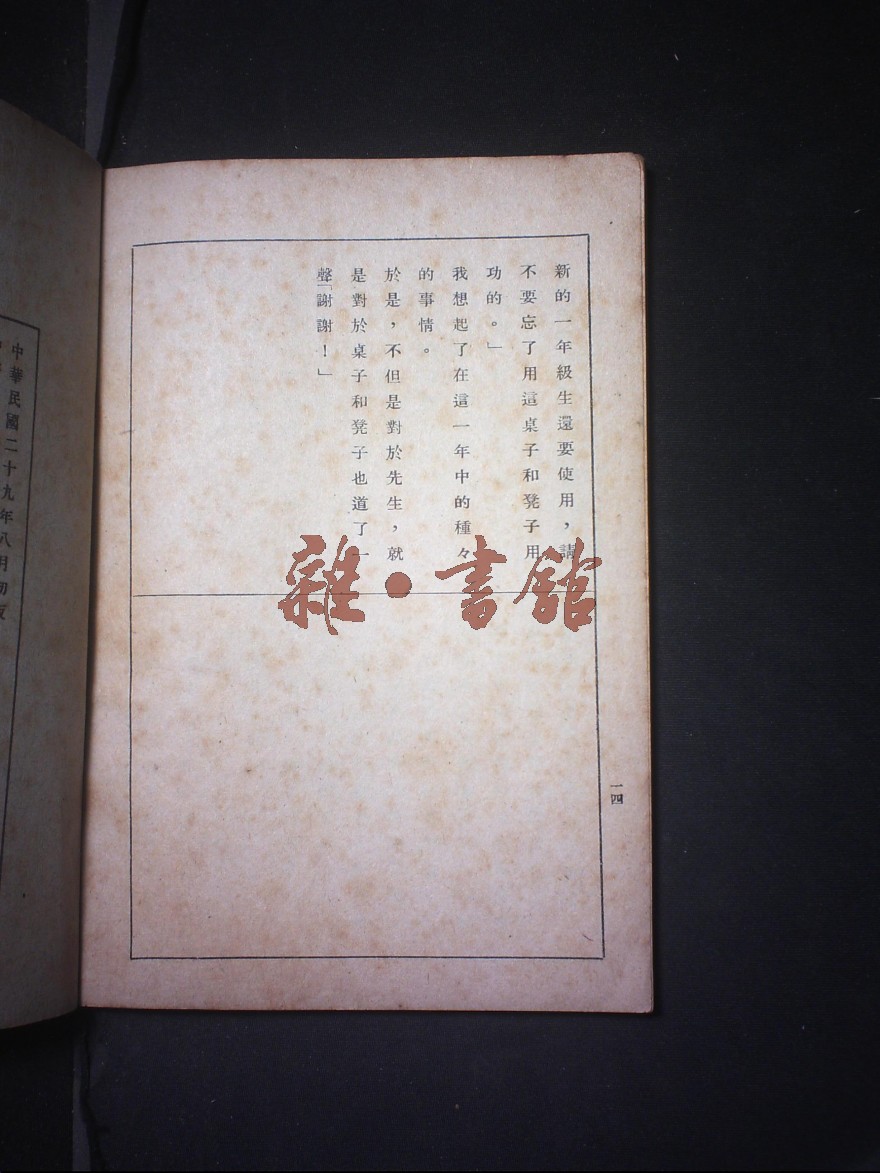 新的一年級生還要使用，請
不要忘了用這桌子和凳子用
功的。」
我想起了在這一年中的種々
的事情。
於是，不但是對於先生，就
是對於桌子和凳子也道了一
聲「謝謝！」
一四
雜•書館
中華民國二十九年八月初版